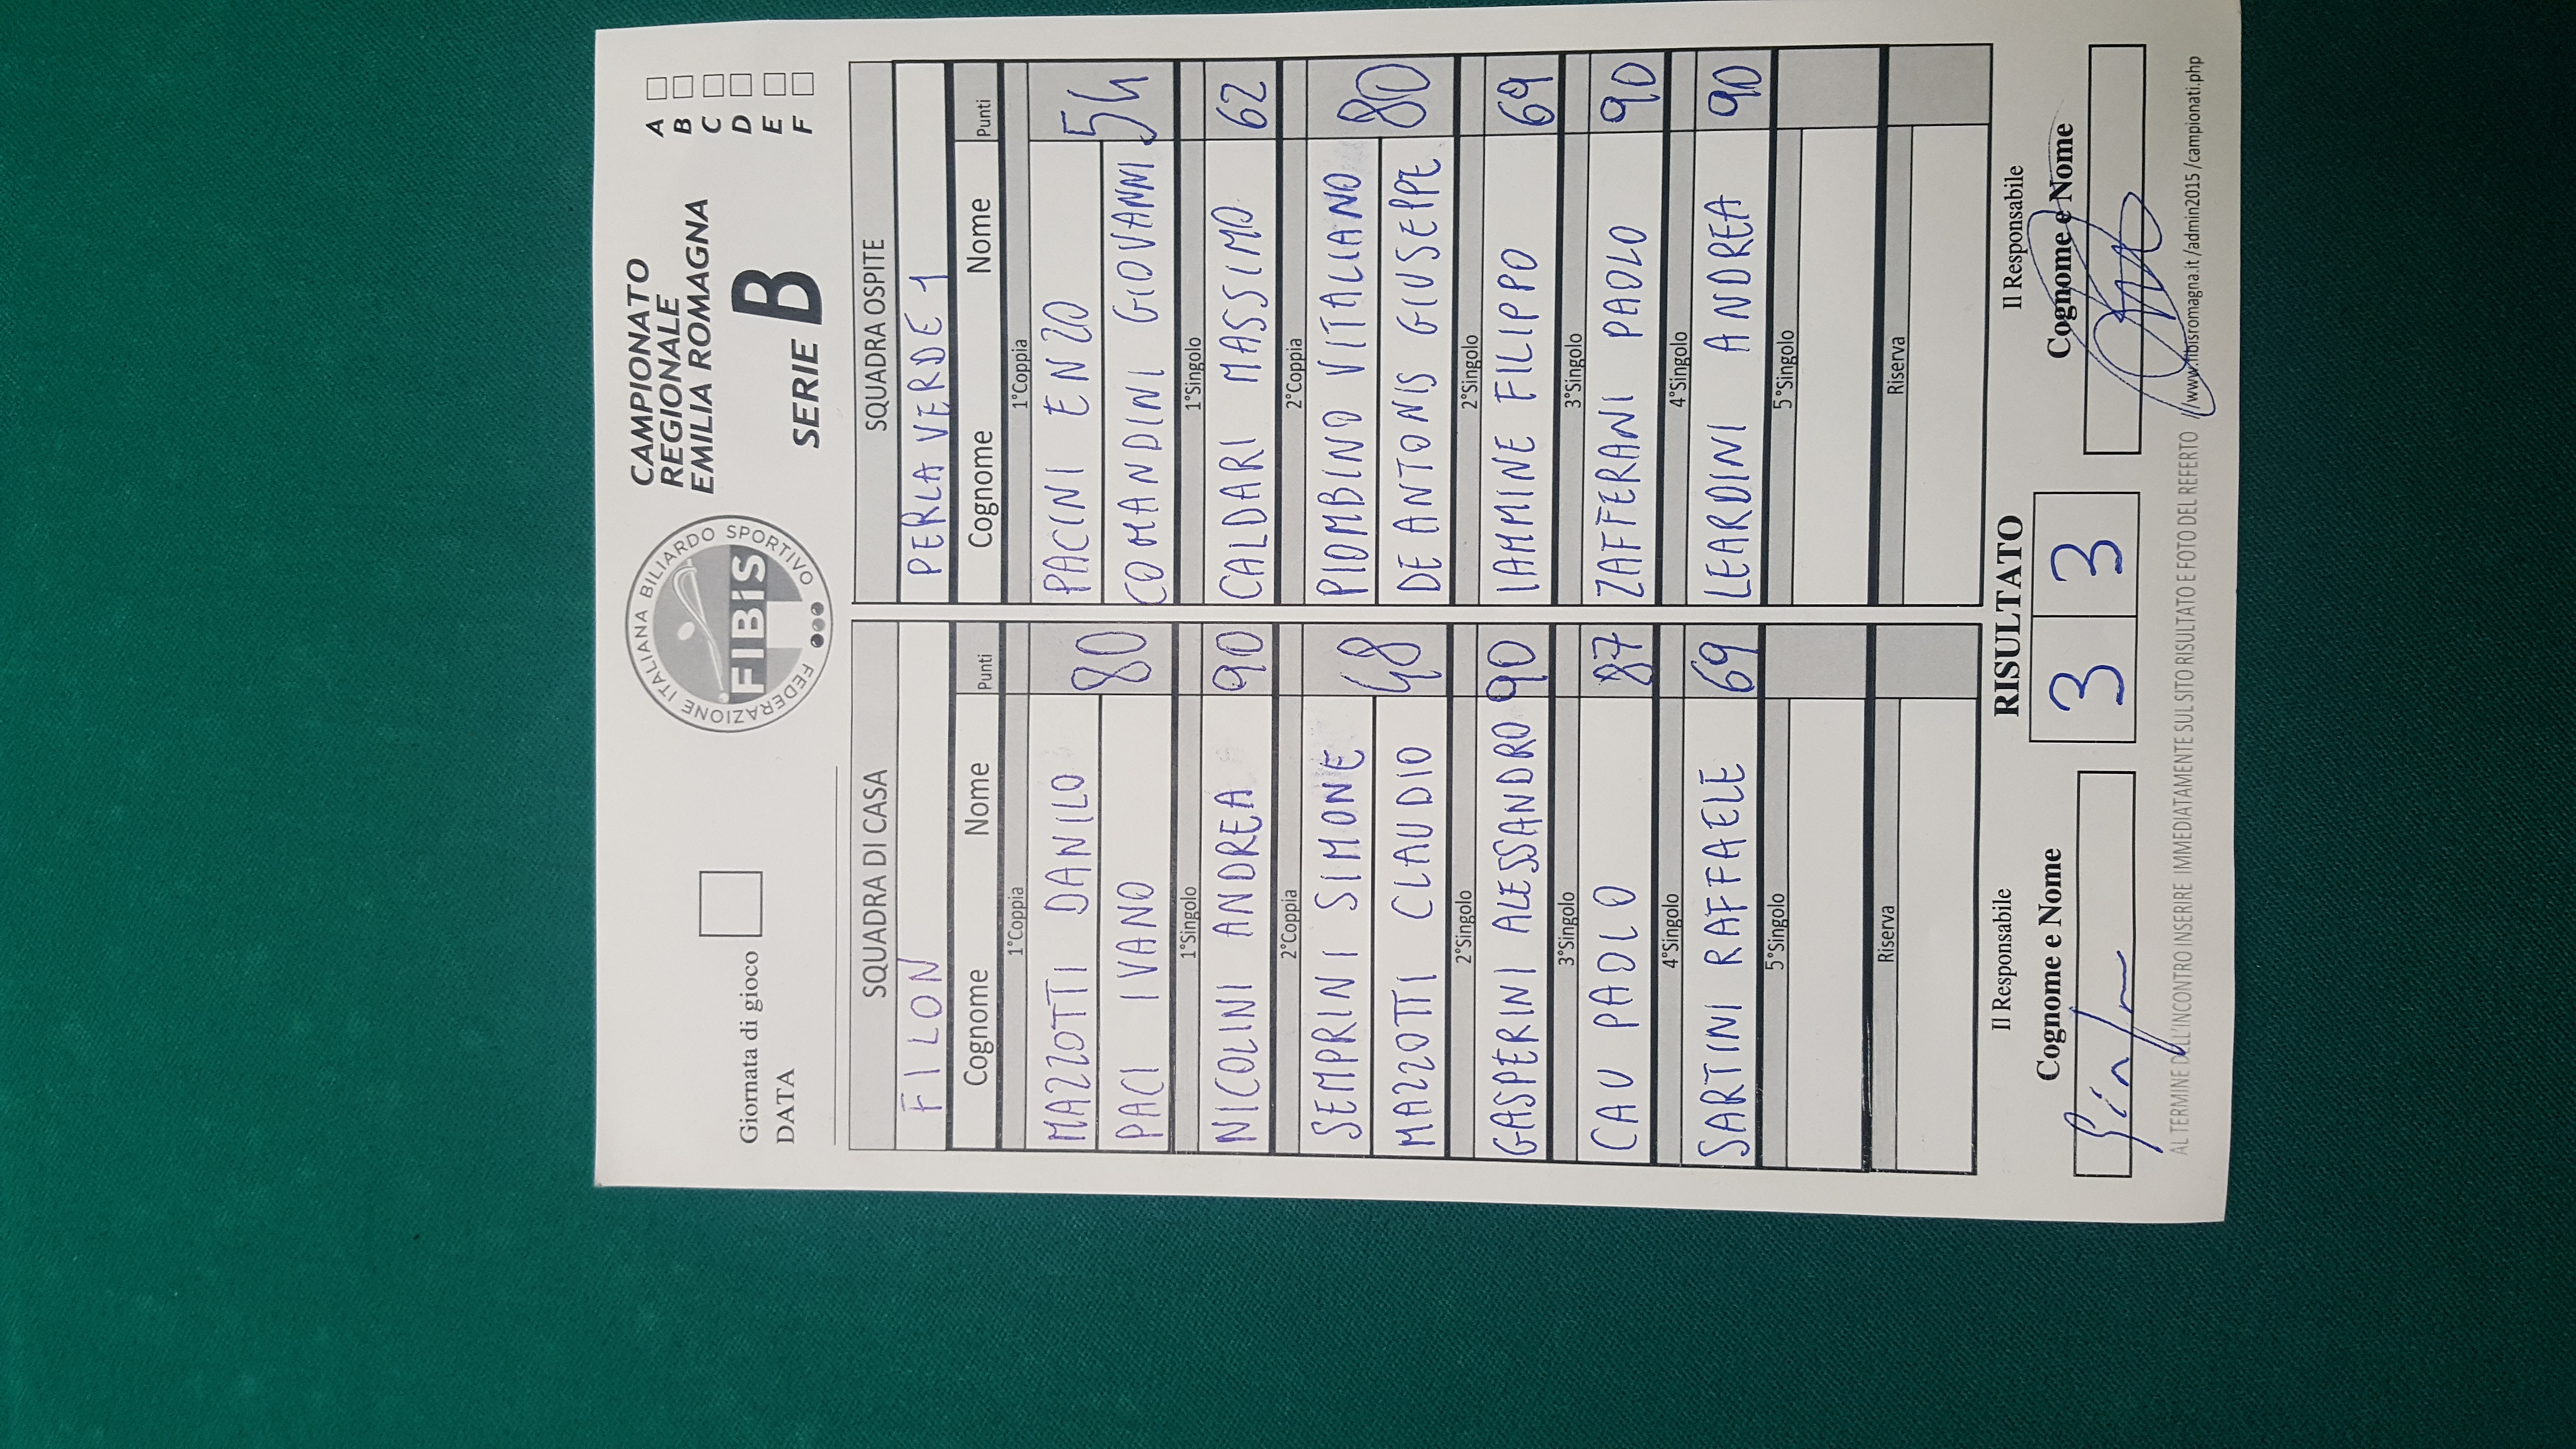 Giornata di gioco
DATA
FEDERAZIONE ITALIANA BILIARDO SPORTIVO
FIBiS
CAMPIONATO
REGIONALE
EMILIA ROMAGNA
SERIE B
A
B
C
D
E
F
SQUADRA DI CASA
FILON
Cognome Nome Punti
1°Coppia
MAZZOTTI DANILO 80
PACI IVANO
1°Singolo
NICOLINI ANDREA 90
2°Coppia
SEMPRINI SIMONE 48
MAZZOTTI CLAUDIO
2°Singolo
GASPERINI ALESSANDRO 90
3°Singolo
CAU PAOLO 87
4°Singolo
SARTINI RAFFAELE 69
5°Singolo
Riserva
SQUADRA OSPITE
PERLA VERDE 1
Cognome Nome Punti
1°Coppia
PACINI ENZO 54
COMANDINI GIOVANNI
1°Singolo
CALDARI MASSIMO 62
2°Coppia
PIOMBINO VITALIANO 80
DE ANTONIS GIUSEPPE
2°Singolo
IAMMINE FILIPPO 69
3°Singolo
ZAFFERANI PAOLO 90
4°Singolo
LEARDINI ANDREA 90
5°Singolo
Riserva
Il Responsabile
Cognome e Nome
RISULTATO
3 3
Il Responsabile
Cognome e Nome
AL TERMINE DELL'INCONTRO INSERIRE IMMEDIATAMENTE SUL SITO RISULTATO E FOTO DEL REFERTO //www.fibisromagna.it/admin2015/campionati.php